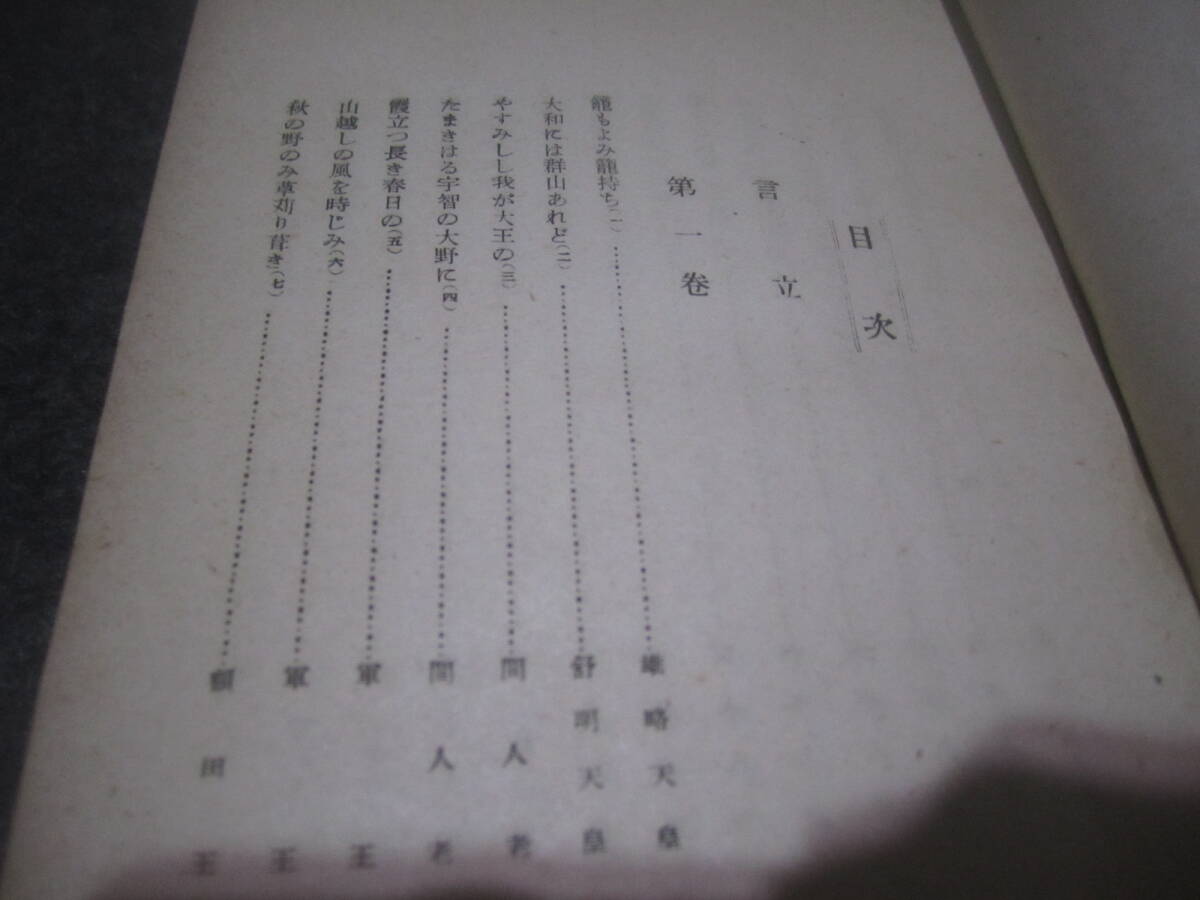 目次
言立
第一卷
籠もよみ籠持ち(一)……雄略天皇
大和には群山あれど(二)……舒明天皇
やすみしし我が大王の(三)……間人老
たまきはる宇智の大野に(四)……間人老
霞立つ長き春日の(五)……軍王
山越しの風を時じみ(六)……軍王
秋の野のみ草苅り葺き(七)……額田王